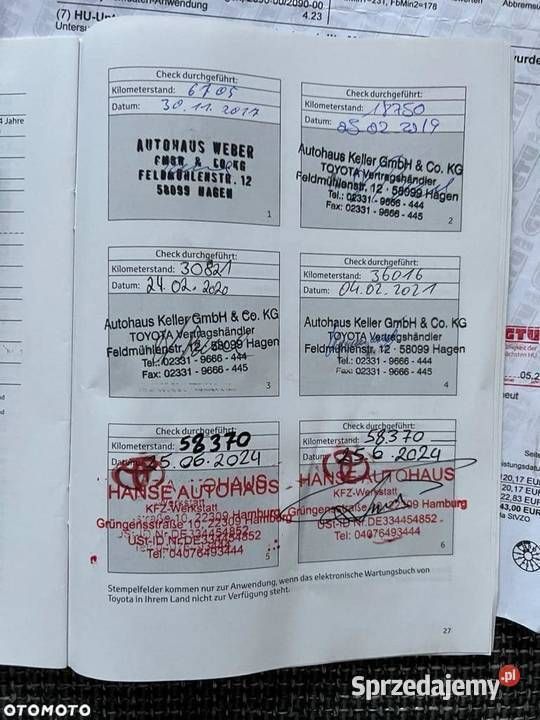 (7) HU-Unt
4.23
Untersu
FbMin2=178
Abbremsu
4 Jahre
Check durchgeführt:
Kilometerstand: 6705
Datum: 30.11.2017
AUTOHAUS WEBER
GMBH & CO.KG
FELDMÜHLENSTR. 12
58099 HAGEN
1
Check durchgeführt:
Kilometerstand: 18750
Datum: 05 02 2019
Autohaus Keller GmbH & Co. KG
TOYOTA Vertragshändler
Feldmühlenstr. 12 · 58099 Hagen
Tel.: 02331 - 9666 - 444
Fax: 02331 - 9666 - 445
2
Check durchgeführt:
Kilometerstand: 30821
Datum: 24.02.2020
Autohaus Keller GmbH & Co. KG
TOYOTA Vertragshändler
Feldmühlenstr. 12 · 58099 Hagen
Tel.: 02331 - 9666 - 444
Fax: 02331 - 9666 - 445
3
Check durchgeführt:
Kilometerstand: 36016
Datum: 04.02.2021
Autohaus Keller GmbH & Co. KG
TOYOTA Vertragshändler
Feldmühlenstr. 12 · 58099 Hagen
Tel.: 02331 - 9666 - 444
Fax: 02331 - 9666 - 445
4
Check durchgeführt:
Kilometerstand: 58370
Datum: 25.06.2024
HANSE AUTOHAUS
KFZ-Werkstatt
Grüngensstraße 10, 22309 Hamburg
USt-ID Nr.DE334454852
Tel: 04076493444
5
Check durchgeführt:
Kilometerstand: 58370
Datum: 25.6.2024
HANSE AUTOHAUS
KFZ-Werkstatt
Grüngensstraße 309 Hamburg
USt-ID Nr.DE334454852
Tel: 04076493444
6
Stempelfelder kommen nur zur Anwendung, wenn das elektronische Wartungsbuch von
Toyota in Ihrem Land nicht zur Verfügung steht.
27
GTÜ
.05.2
neut
120,17 EUR
120,17 EUR
22,83 EUR
43,00 EUR
StVZO
OTOMOTO
Sprzedajemy.pl